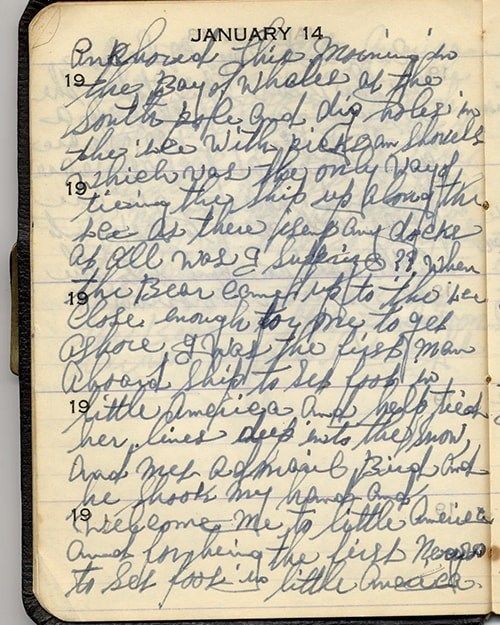 JANUARY 14
Ankhored this morning in
19
the Bay of Whales of the
South pole and dig holes in
the ice with picks an shovels
which was the only way of
19
tieing the ship up along the
ice as there isent any docks
at all was I suprise ?? When
19
the Bear comes up to the ice
close enough for me to get
ashore I was the first man
aboard ship to set foot in
19
little America and help tied
her lines deep into the snow
and met admiril Bird and
he shook my hand and
19
Welcome me to little America
and for being the first Negro
to set foot in little America.